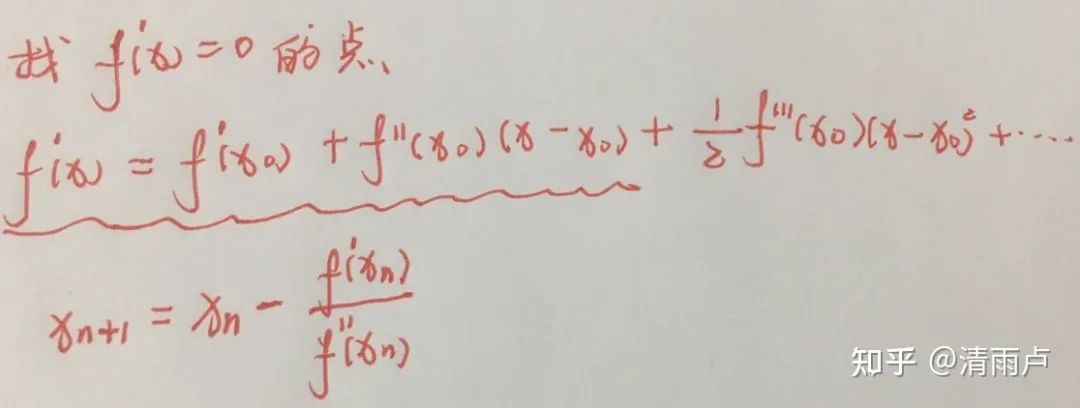 找 f'(x)=0 的点、
f'(x) = f'(x₀) + f''(x₀)(x-x₀) + 1/2 f'''(x₀)(x-x₀)² + ....
xₙ₊₁ = xₙ - f'(xₙ)/f''(xₙ)
知乎 @清雨卢